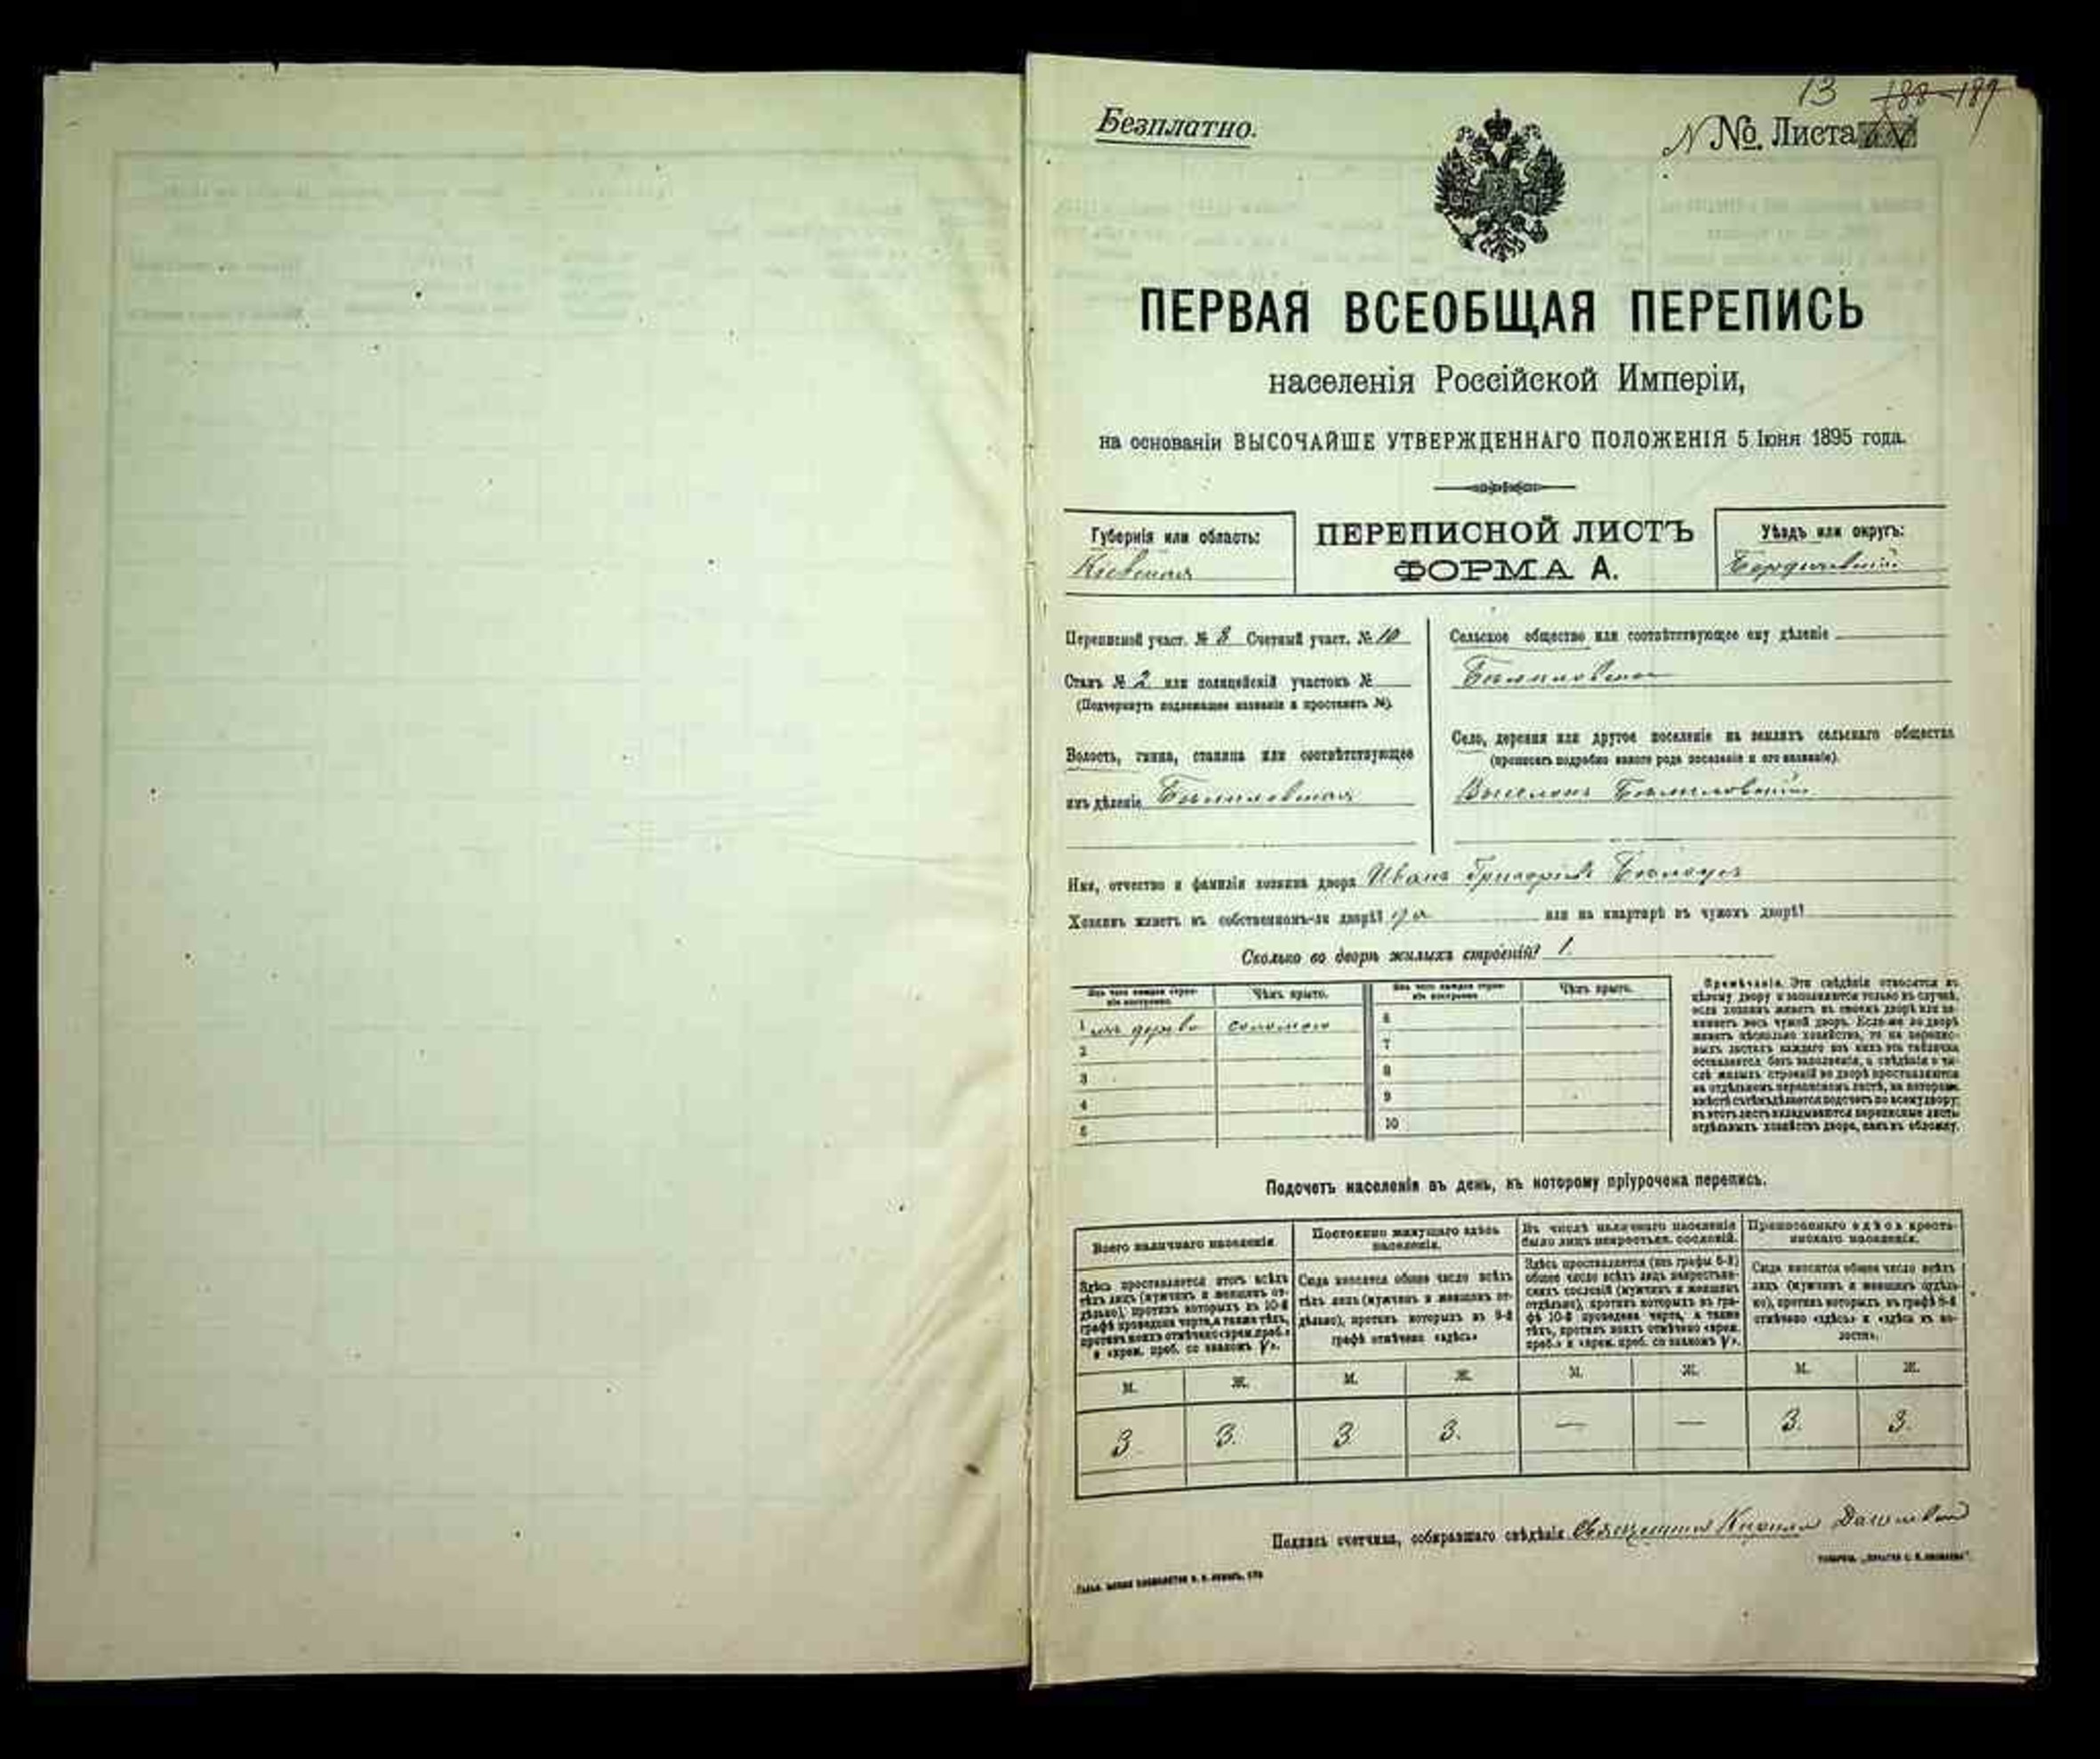 13 188-189
Безплатно.
№. Листа
ПЕРВАЯ ВСЕОБЩАЯ ПЕРЕПИСЬ
населенія Россійской Имперіи,
на основаніи ВЫСОЧАЙШЕ УТВЕРЖДЕННАГО ПОЛОЖЕНІЯ 5 Іюня 1895 года.
Губернія или область:
Кіевская
ПЕРЕПИСНОЙ ЛИСТЪ
ФОРМА А.
Уѣздъ или округъ:
Бердичевскій
Переписной участ. № 8 Счетный участ. № 10
Станъ № 2 или полицейскій участокъ №
(Подчеркнуть подлежащее названіе и проставить №).
Волость, гмина, станица или соотвѣтствующее
имъ дѣленіе Бѣлиловская
Сельское общество или соотвѣтствующее ему дѣленіе
Бѣлиловское
Село, деревня или другое поселеніе на земляхъ сельскаго общества
(прописать подробно какого рода поселеніе и его названіе).
Выселокъ Бѣлиловскій
Имя, отчество и фамилія хозяина двора Иванъ Григорьевъ Бѣлоусъ
Хозяинъ живетъ въ собственномъ-ли дворѣ? да или на квартирѣ въ чужомъ дворѣ?
Сколько во дворѣ жилыхъ строеній? 1.
Изъ чего каждое строеніе построено. Чѣмъ крыто. Изъ чего каждое строеніе построено. Чѣмъ крыто.
1 изъ дерева соломою 6
2 7
3 8
4 9
5 10
Примѣчаніе. Эти свѣдѣнія относятся къ
цѣлому двору и заполняются только въ случаѣ,
если хозяинъ живетъ въ своемъ дворѣ или занимаетъ весь чужой дворъ. Если-же во дворѣ
живетъ нѣсколько хозяйствъ, то на переписныхъ листахъ каждаго изъ нихъ эта табличка
оставляется безъ заполненія, а свѣдѣнія о числѣ жилыхъ строеній во дворѣ проставляются
на отдѣльномъ переписномъ листѣ, на которомъ
вмѣстѣ съ тѣмъ дѣлается подсчетъ по всему двору;
въ этотъ листъ вкладываются переписные листы
отдѣльныхъ хозяйствъ двора, какъ въ обложку.
Подсчетъ населенія въ день, къ которому пріурочена перепись.
Всего наличнаго населенія
Постоянно живущаго здѣсь населенія.
Въ числѣ наличнаго населенія было лицъ некрестьян. сословій.
Приписаннаго здѣсь крестьянскаго населенія.
Здѣсь проставляется итогъ всѣхъ
тѣхъ лицъ (мужчинъ и женщинъ отдѣльно), противъ которыхъ въ 10-й
графѣ проведена черта, а также тѣхъ,
противъ коихъ отмѣчено «врем. преб.»
и «врем. преб. со знакомъ V».
Сюда вносится общее число всѣхъ
тѣхъ лицъ (мужчинъ и женщинъ отдѣльно), противъ которыхъ въ 9-й
графѣ отмѣчено «здѣсь»
Здѣсь проставляется (изъ графы 6-й)
общее число всѣхъ лицъ некрестьянскихъ сословій (мужчинъ и женщинъ
отдѣльно), противъ которыхъ въ графѣ 10-й проведена черта, а также
тѣхъ, противъ коихъ отмѣчено «врем.
преб.» и «врем. преб. со знакомъ V».
Сюда вносится общее число всѣхъ
лицъ (мужчинъ и женщинъ отдѣльно), противъ которыхъ въ графѣ 8-й
отмѣчено «здѣсь» и «здѣсь въ волости».
М. Ж. М. Ж. М. Ж. М. Ж.
3 3. 3 3. — — 3. 3.
Подпись счетчика, собиравшаго свѣдѣнія Священникъ